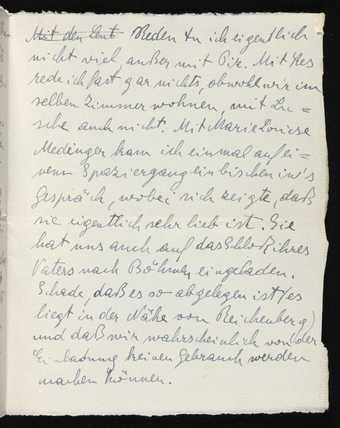 Mit den Leut Reden tu ich eigentlich
nicht viel, außer mit Pix. Mit Res
rede ich fast gar nichts, obwohl wir im
selben Zimmer wohnen, mit Lu=
sche auch nicht. Mit Marie Louise
Medinger kam ich einmal auf ei=
nem Spaziergang ein bischen in's
Gespräch, wobei sich zeigte, daß
sie eigentlich sehr lieb ist. Sie
hat uns auch auf das Schloß ihres
Vaters nach Böhmen eingeladen.
Schade, daß es so abgelegen ist (es
liegt in der Nähe von Reichenberg)
und daß wir wahrscheinlich von der
Einladung keinen Gebrauch werden
machen können.